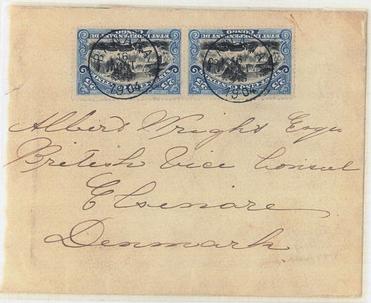 ETAT INDEPENDANT DU CONGO ETAT INDEPENDANT DU CONGO
25 25 25 25
1904 1904
Albert Wright Esqu
British Vice Consul
Elsenore
Denmark